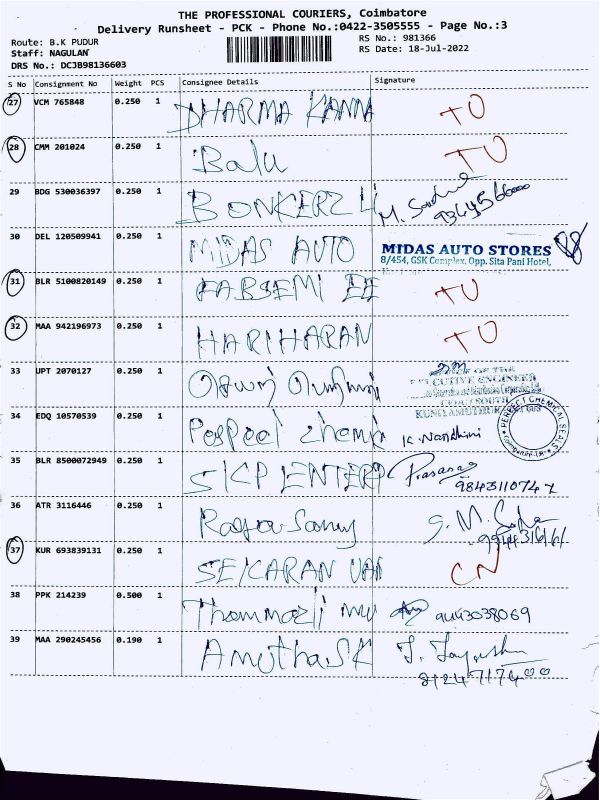 THE PROFESSIONAL COURIERS, Coimbatore
Delivery Runsheet - PCK - Phone No.:0422-3505555 - Page No.:3
Route: B.K PUDUR
RS No.: 981366
Staff: NAGULAN
RS Date: 18-Jul-2022
DRS No.: DCJB98136603
S No Consignment No Weight PCS Consignee Details Signature
27 VCM 765848 0.250 1 DHARMA KANNA TO
28 CMM 201024 0.250 1 Balu TO
29 BDG 530036397 0.250 1 BONKERZ 4 M.
30 DEL 120509941 0.250 1 MIDAS AUTO MIDAS AUTO STORES
8/454, GSK Complex, Opp. Sita Pani Hotel,
31 BLR 5100820149 0.250 1 FABSEMI EE TO
32 MAA 942196973 0.250 1 HARIHARAN TO
33 UPT 2070127 0.250 1
OF THE
EXECUTIVE ENGINEER
34 EDQ 10570539 0.250 1 K. Nandhini
PERFECT CHEMICAL SEALS
35 BLR 8500072949 0.250 1 SKP ENTERP
36 ATR 3116446 0.250 1 G. M.
37 KUR 693839131 0.250 1 SEKARAN VAN CN
38 PPK 214239 0.500 1 9443038069
39 MAA 290245456 0.190 1 Amutha SK J.
8124717400